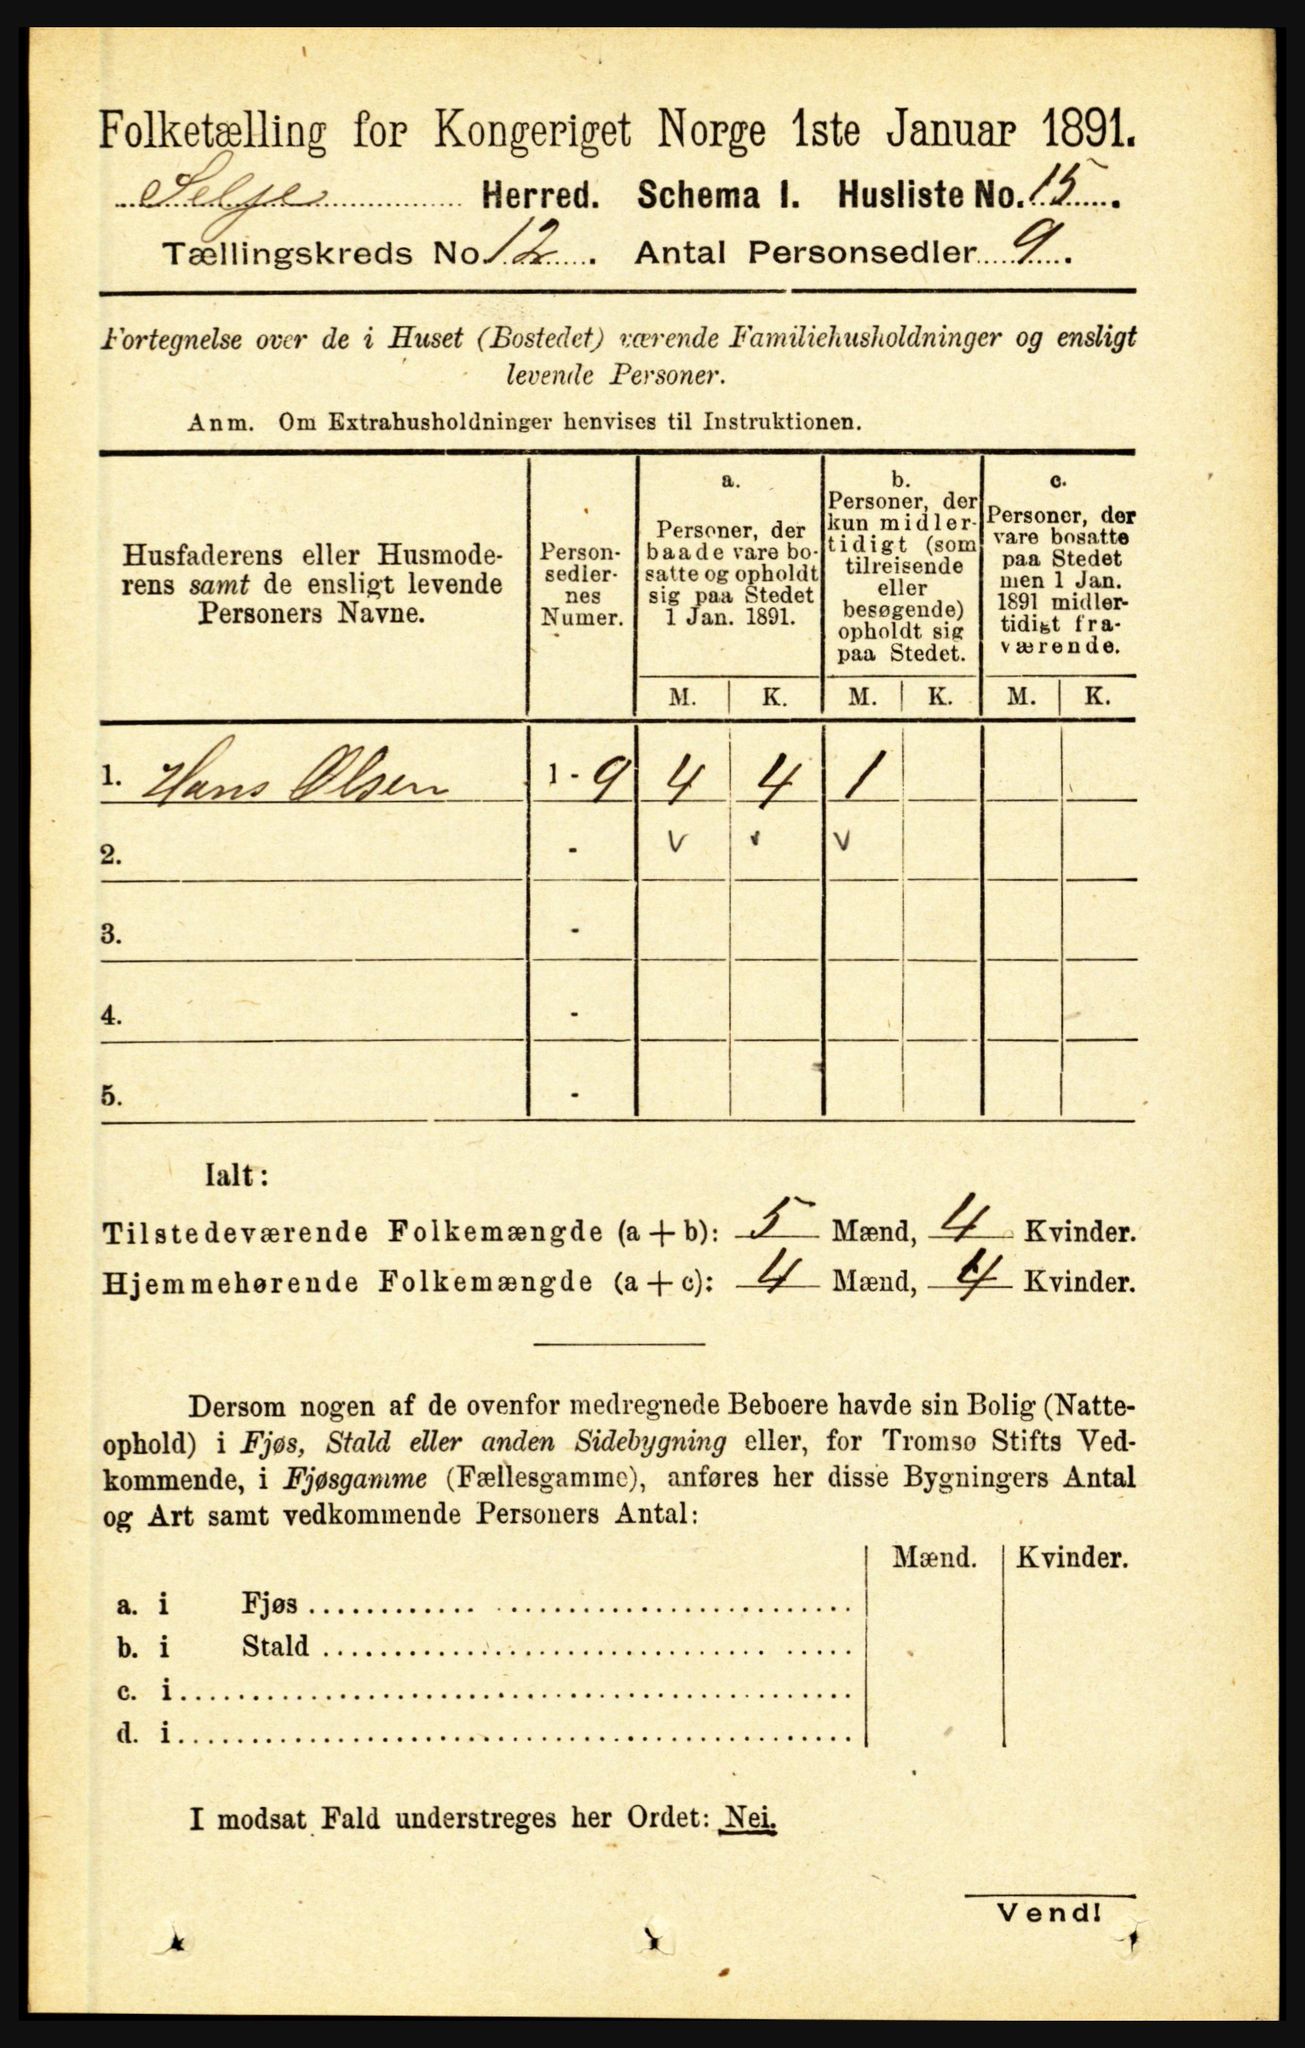 Folketælling for Kongeriget Norge 1ste Januar 1891.
Selje Herred. Schema I. Husliste No. 15.
Tællingskreds No 12. Antal Personsedler 9.
Fortegnelse over de i Huset (Bostedet) værende Familiehusholdninger og ensligt
levende Personer.
Anm. Om Extrahusholdninger henvises til Instruktionen.
Husfaderens eller Husmode-
rens samt de ensligt levende
Personers Navne.
Person-
sedler-
nes
Numer.
a.
Personer, der
baade vare bo-
satte og opholdt
sig paa Stedet
1 Jan. 1891.
b.
Personer, der
kun midler-
tidigt (som
tilreisende
eller
besøgende)
opholdt sig
paa Stedet.
c.
Personer, der
vare bosatte
paa Stedet
men 1 Jan.
1891 midler-
tidigt fra-
værende.
M. K. M. K. M. K.
1. Hans Olsen 1 - 9 4 4 1
2. - v v v
3. -
4. -
5. -
Ialt:
Tilstedeværende Folkemængde (a + b): 5 Mænd, 4 Kvinder.
Hjemmehørende Folkemængde (a + c): 4 Mænd, 4 Kvinder.
Dersom nogen af de ovenfor medregnede Beboere havde sin Bolig (Natte-
ophold) i Fjøs, Stald eller anden Sidebygning eller, for Tromsø Stifts Ved-
kommende, i Fjøsgamme (Fællesgamme), anføres her disse Bygningers Antal
og Art samt vedkommende Personers Antal:
Mænd. Kvinder.
a. i Fjøs
b. i Stald
c. i
d. i
I modsat Fald understreges her Ordet: Nei.
Vend!